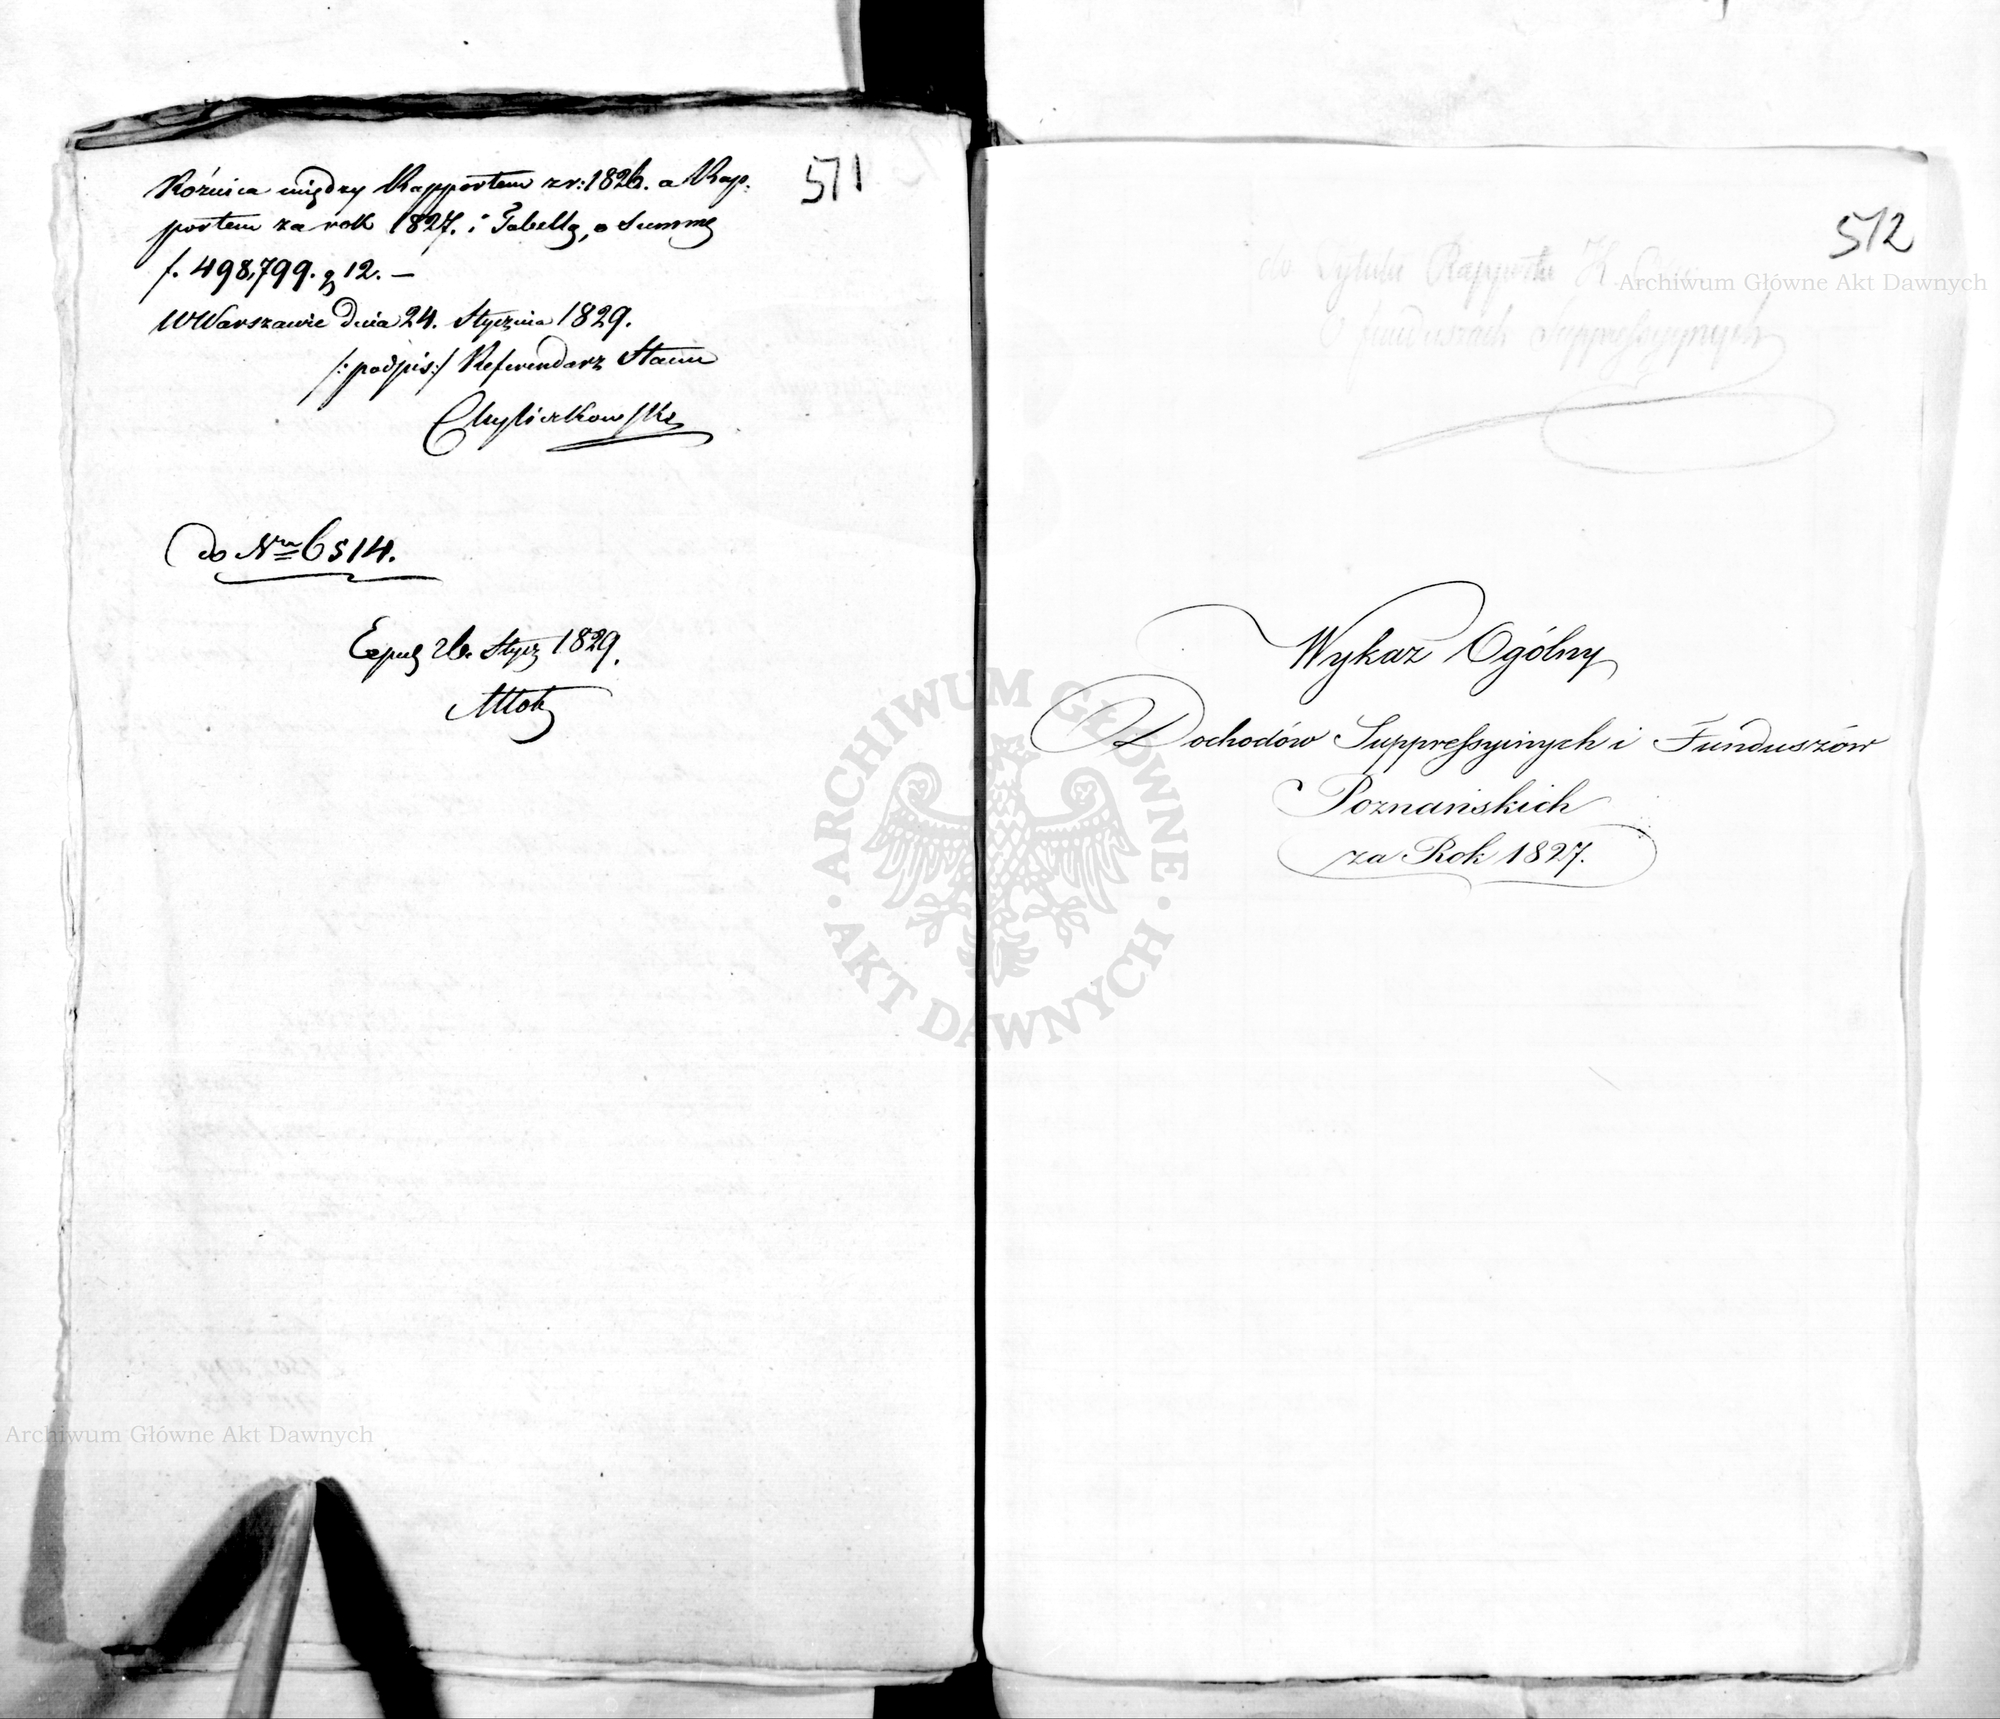 571
Różnica między Rapportem z r: 1826. a Rap-
portem za rok 1827. i Tabellą, o Summę
f. 498,799. g 12. —
W Warszawie dnia 24. Stycznia 1829.
/: podpis :/ Referendarz Stanu
Chyliczkowski
do Nru 6514.
26. Stycz 1829.
512
do Tytułu Rapportu
O funduszach Suppressyjnych
Wykaz Ogólny
Dochodów Suppressyinych i Funduszów
Poznańskich
za Rok 1827.
Archiwum Główne Akt Dawnych
ARCHIWUM GŁÓWNE · AKT DAWNYCH ·
Archiwum Główne Akt Dawnych